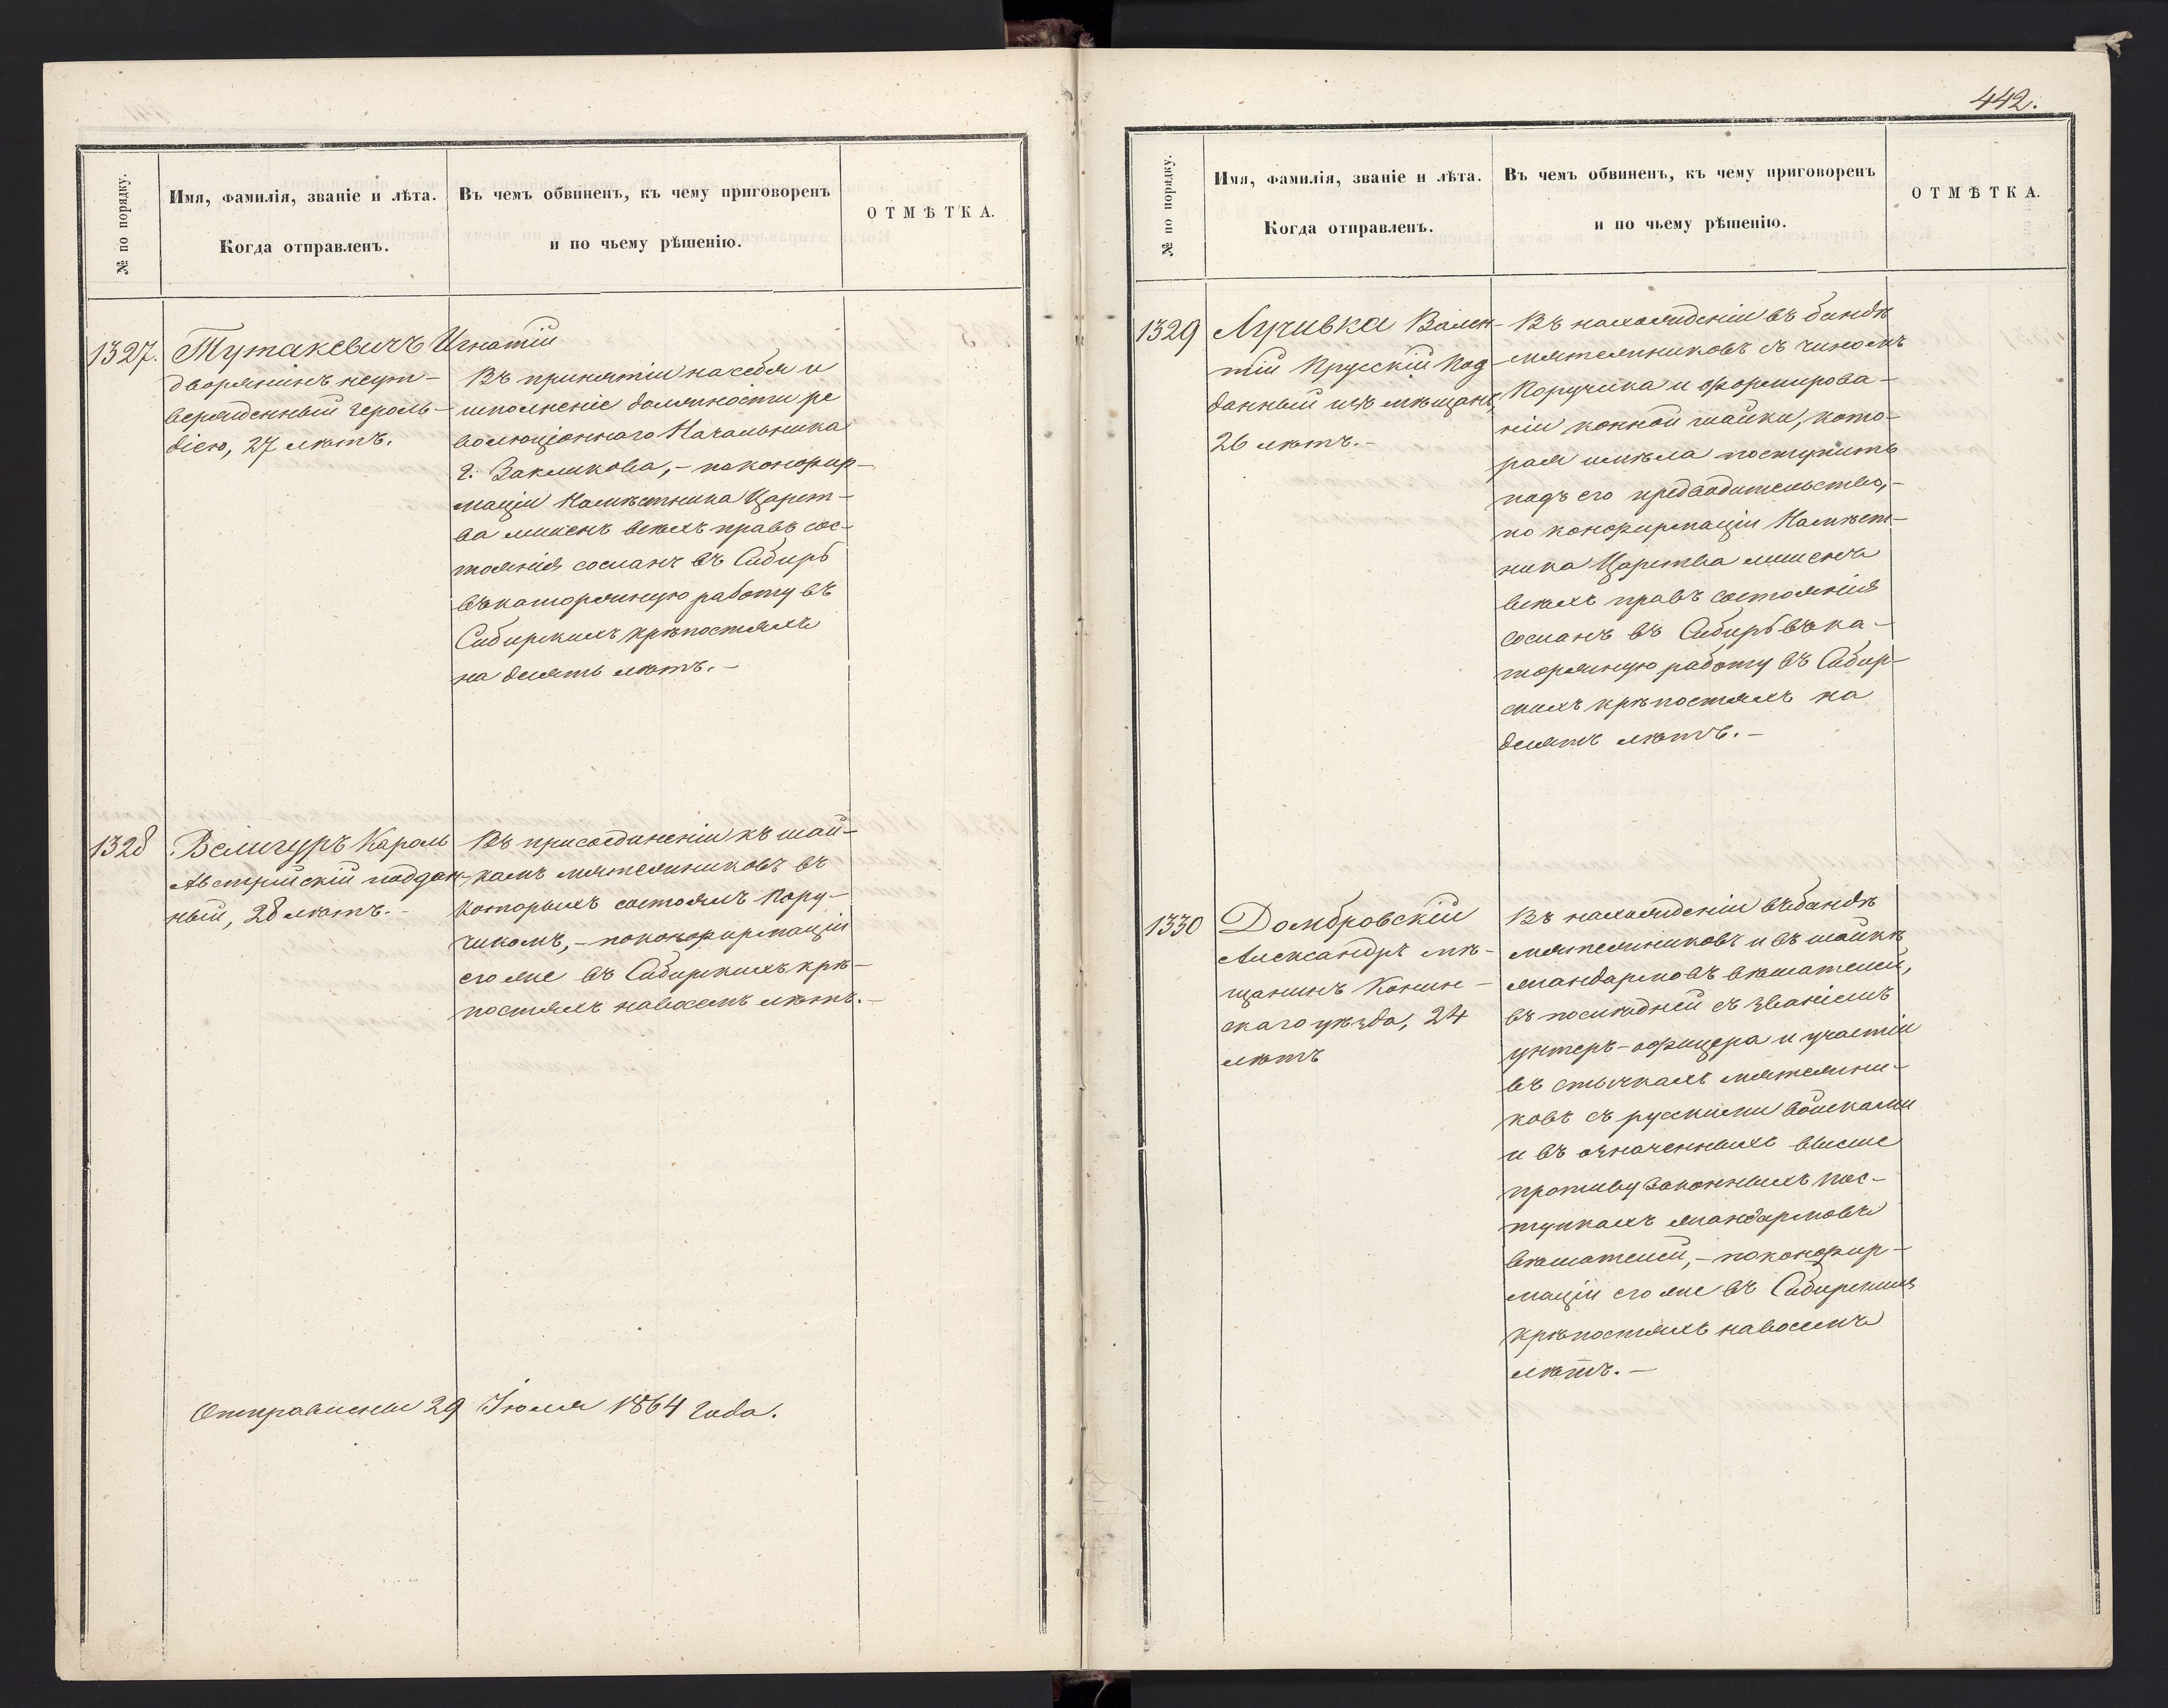 № по порядку.
Имя, фамилія, званіе и лѣта.
Когда отправленъ.
Въ чемъ обвиненъ, къ чему приговоренъ
и по чьему рѣшенію.
ОТМѢТКА.
1327. Тутакевичъ Игнатій
дворянинъ неут-
вержденный героль-
діею, 27 лѣтъ.
Въ принятіи на себя и
исполненіе должности ре
волюціоннаго Начальника
г. Закликова, - по конфир-
маціи Намѣстника Царст-
ва лишенъ всѣхъ правъ сос-
тоянія сосланъ въ Сибирь
въ каторжную работу въ
Сибирскихъ крѣпостяхъ
на десять лѣтъ. -
1328. Велигуръ Кароль
Австрійскій поддан-
ный, 28 лѣтъ. -
Въ присоединеніи къ шай-
камъ мятежниковъ въ
которыхъ состоялъ Пору-
чикомъ, - по конфирмаціи
его же въ Сибирскихъ крѣ-
постяхъ на восемь лѣтъ. -
Отправлены 29 Іюля 1864 года.
442.
№ по порядку.
Имя, фамилія, званіе и лѣта.
Когда отправленъ.
Въ чемъ обвиненъ, къ чему приговоренъ
и по чьему рѣшенію.
ОТМѢТКА.
1329 Лучивка Вален-
тій Прусскій Под-
данный изъ мѣщанъ,
26 лѣтъ. -
Въ нахожденіи въ бандѣ
мятежниковъ съ чиномъ
Поручика и формирова-
ніи конной шайки, кото-
рая имѣла поступить
подъ его предводительство, -
по конфирмаціи Намѣст-
ника Царства лишенъ
всѣхъ правъ состоянія
сосланъ въ Сибирь въ ка-
торжную работу въ Сибир-
скихъ крѣпостяхъ на
десять лѣтъ. -
1330 Домбровскій
Александръ мѣ-
щанинъ Конин-
скаго уѣзда, 24
лѣтъ
Въ нахожденіи въ бандѣ
мятежниковъ и въ шайкѣ
жандармовъ вѣшателей,
въ послѣдней съ званіемъ
унтеръ-офицера и участіи
въ стычкахъ мятежни-
ковъ съ русскими войсками
и въ означенныхъ выше
противузаконныхъ пос-
тупкахъ жандармовъ
вѣшателей, - по конфир-
маціи его же въ Сибирскихъ
крѣпостяхъ на восемь
лѣтъ. -